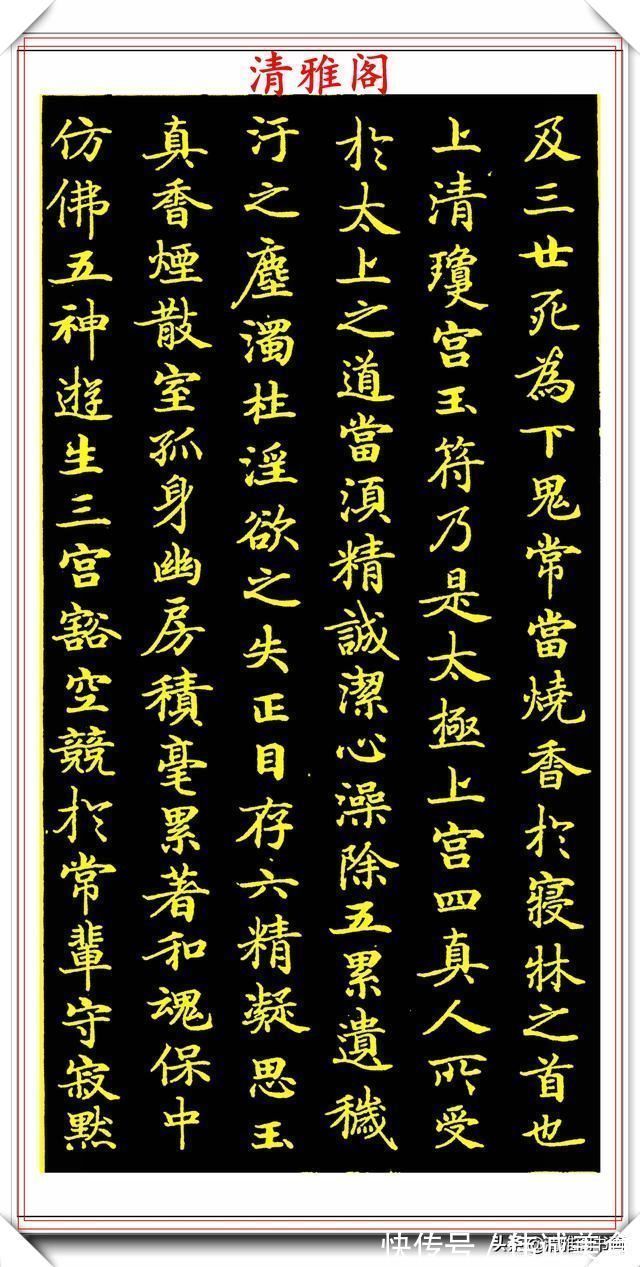 清雅阁
及三世死為下鬼常當燒香於寢牀之首也
上清瓊宮玉符乃是太極上宮四真人所受
於太上之道當湏精誠潔心澡除五累遺穢
汙之塵濁杜淫欲之失正目存六精凝思玉
真香煙散室孤身幽房積毫累著和魂保中
仿佛五神遊生三宮豁空競於常輩守寂默